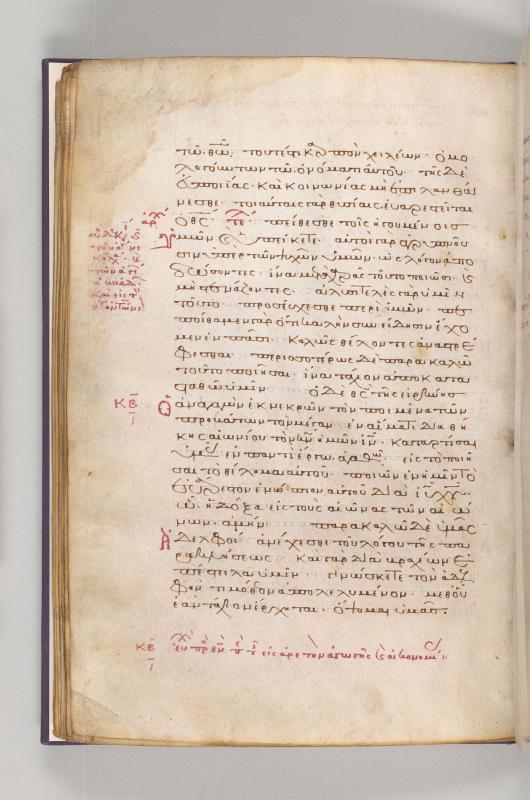 τῶ θω̅. τουτέστι καρπὸν χειλέων. ὁμο
λογούντων τῶ ὀνόματι αὐτοῦ. τῆς δὲ
εὐποιΐας καὶ κοινωνίας μὴ ἐπιλανθά
νεσθε. τοιαύταις γὰρ θυσίαις. εὐαρεστεῖται
ὁ θς̅. τε πείθεσθε τοῖς ἡγουμένοις
ὑμῶν καὶ ὑπείκετε. αὐτοὶ γὰρ ἀγρυπνοῦ
σιν ὑπὲρ τῶν ψυχῶν ὑμῶν. ὡς λόγον ἀπο
δώσοντες. ἵνα μετὰ χαρᾶς τοῦτο ποιῶσι. καὶ
μὴ στενάζοντες. ἀλυσιτελὲς γὰρ ὑμῖν
τοῦτο. προσεύχεσθε περὶ ἡμῶν. πε
ποίθαμεν γὰρ ὅτι καλὴν συνείδησιν ἔχο
μεν ἐν πᾶσι. καλῶς θέλοντες ἀναστρέ
φεσθαι. περισσοτέρως δὲ παρακαλῶ
τοῦτο ποιῆσαι. ἵνα τάχιον ἀποκαταστα
θῶ ὑμῖν. ὁ δὲ θς̅ τῆς εἰρήνης
ΚΒ ὁ ἀναγαγὼν ἐκ νεκρῶν τὸν ποιμένα τῶν
προβάτων τὸν μέγαν. ἐν αἵματι διαθή
κης αἰωνίου τὸν κν̅ ἡμῶν ιν̅. καταρτίσαι
ὑμᾶς ἐν παντὶ ἔργω ἀγαθῶ. εἰς τὸ ποιῆ
σαι τὸ θέλημα αὐτοῦ. ποιῶν ἐν ἡμῖν τὸ
εὐάρεστον ἐνώπιον αὐτοῦ διὰ ιυ̅ χυ̅.
ὧ ἡ δόξα εἰς τοὺς αἰῶνας τῶν αἰώ
νων. ἀμήν. παρακαλῶ δὲ ὑμᾶς
ἀδελφοί. ἀνέχεσθε τοῦ λόγου τῆς πα
ρακλήσεως. καὶ γὰρ διὰ βραχέων ἐ
πέστειλα ὑμῖν. γινώσκετε τὸν ἀδελ
φὸν τιμόθεον ἀπολελυμένον. μεθ' οὗ
ἐὰν τάχιον ἔρχηται. ὄψομαι ὑμᾶς.
ΚΒ